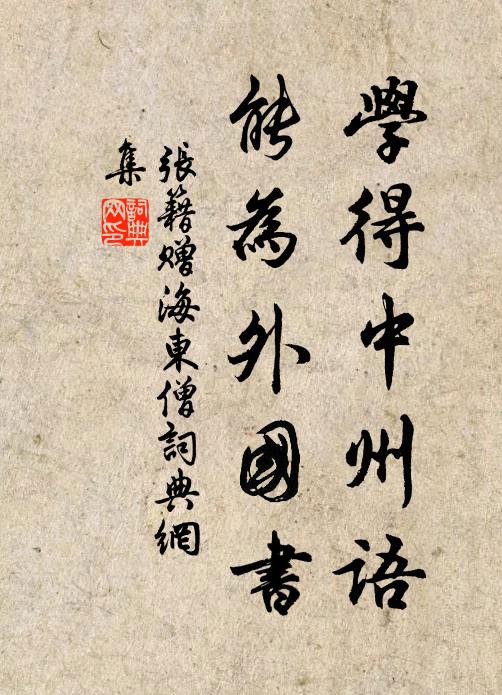 學得中州語
能為外國書
張籍贈海東僧詞典網
集
詞典
网印